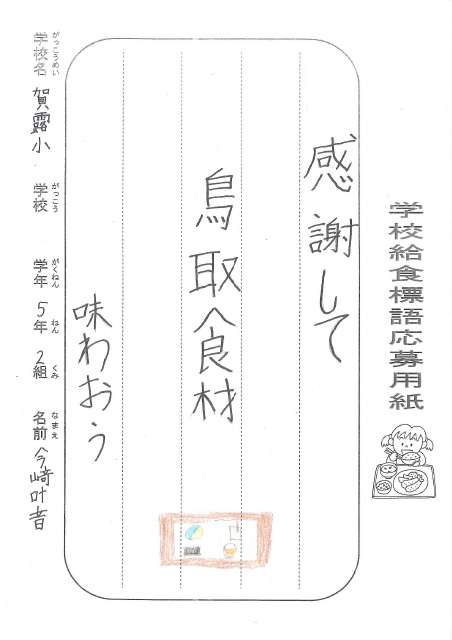 学校給食標語応募用紙
感謝して
鳥取食材
味わおう
学校名 賀露小 学校 学年 5年 2組 名前 今崎叶音
がっこうめい がっこう がくねん ねん くみ なまえ